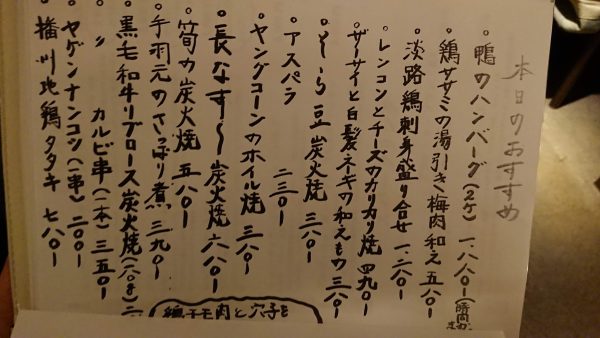 本日のおすすめ
・鴨のハンバーグ(2ケ) 一、八八〇ー(時間が
・鶏ササミの湯引き梅肉和え 五八〇ー
・淡路鶏刺身盛り合せ 一、二八〇ー
・レンコンとチーズのカリカリ焼 四九〇ー
・ザーサイと白髪ネギの和えもの 三八〇ー
・そら豆炭火焼 三八〇ー
・アスパラ 二三〇ー
・ヤングコーンのホイル焼 三八〇ー
・長なす〜炭火焼 六八〇ー
・筍の炭火焼 五八〇ー
・手羽元のさっぱり煮 三九〇ー
・黒毛和牛リブロース炭火焼(八〇g) 二
・〃 カルビ串(一本) 三五〇ー
・ヤゲンナンコツ(一串) 二〇〇ー
・播州地鶏タタキ 七八〇ー